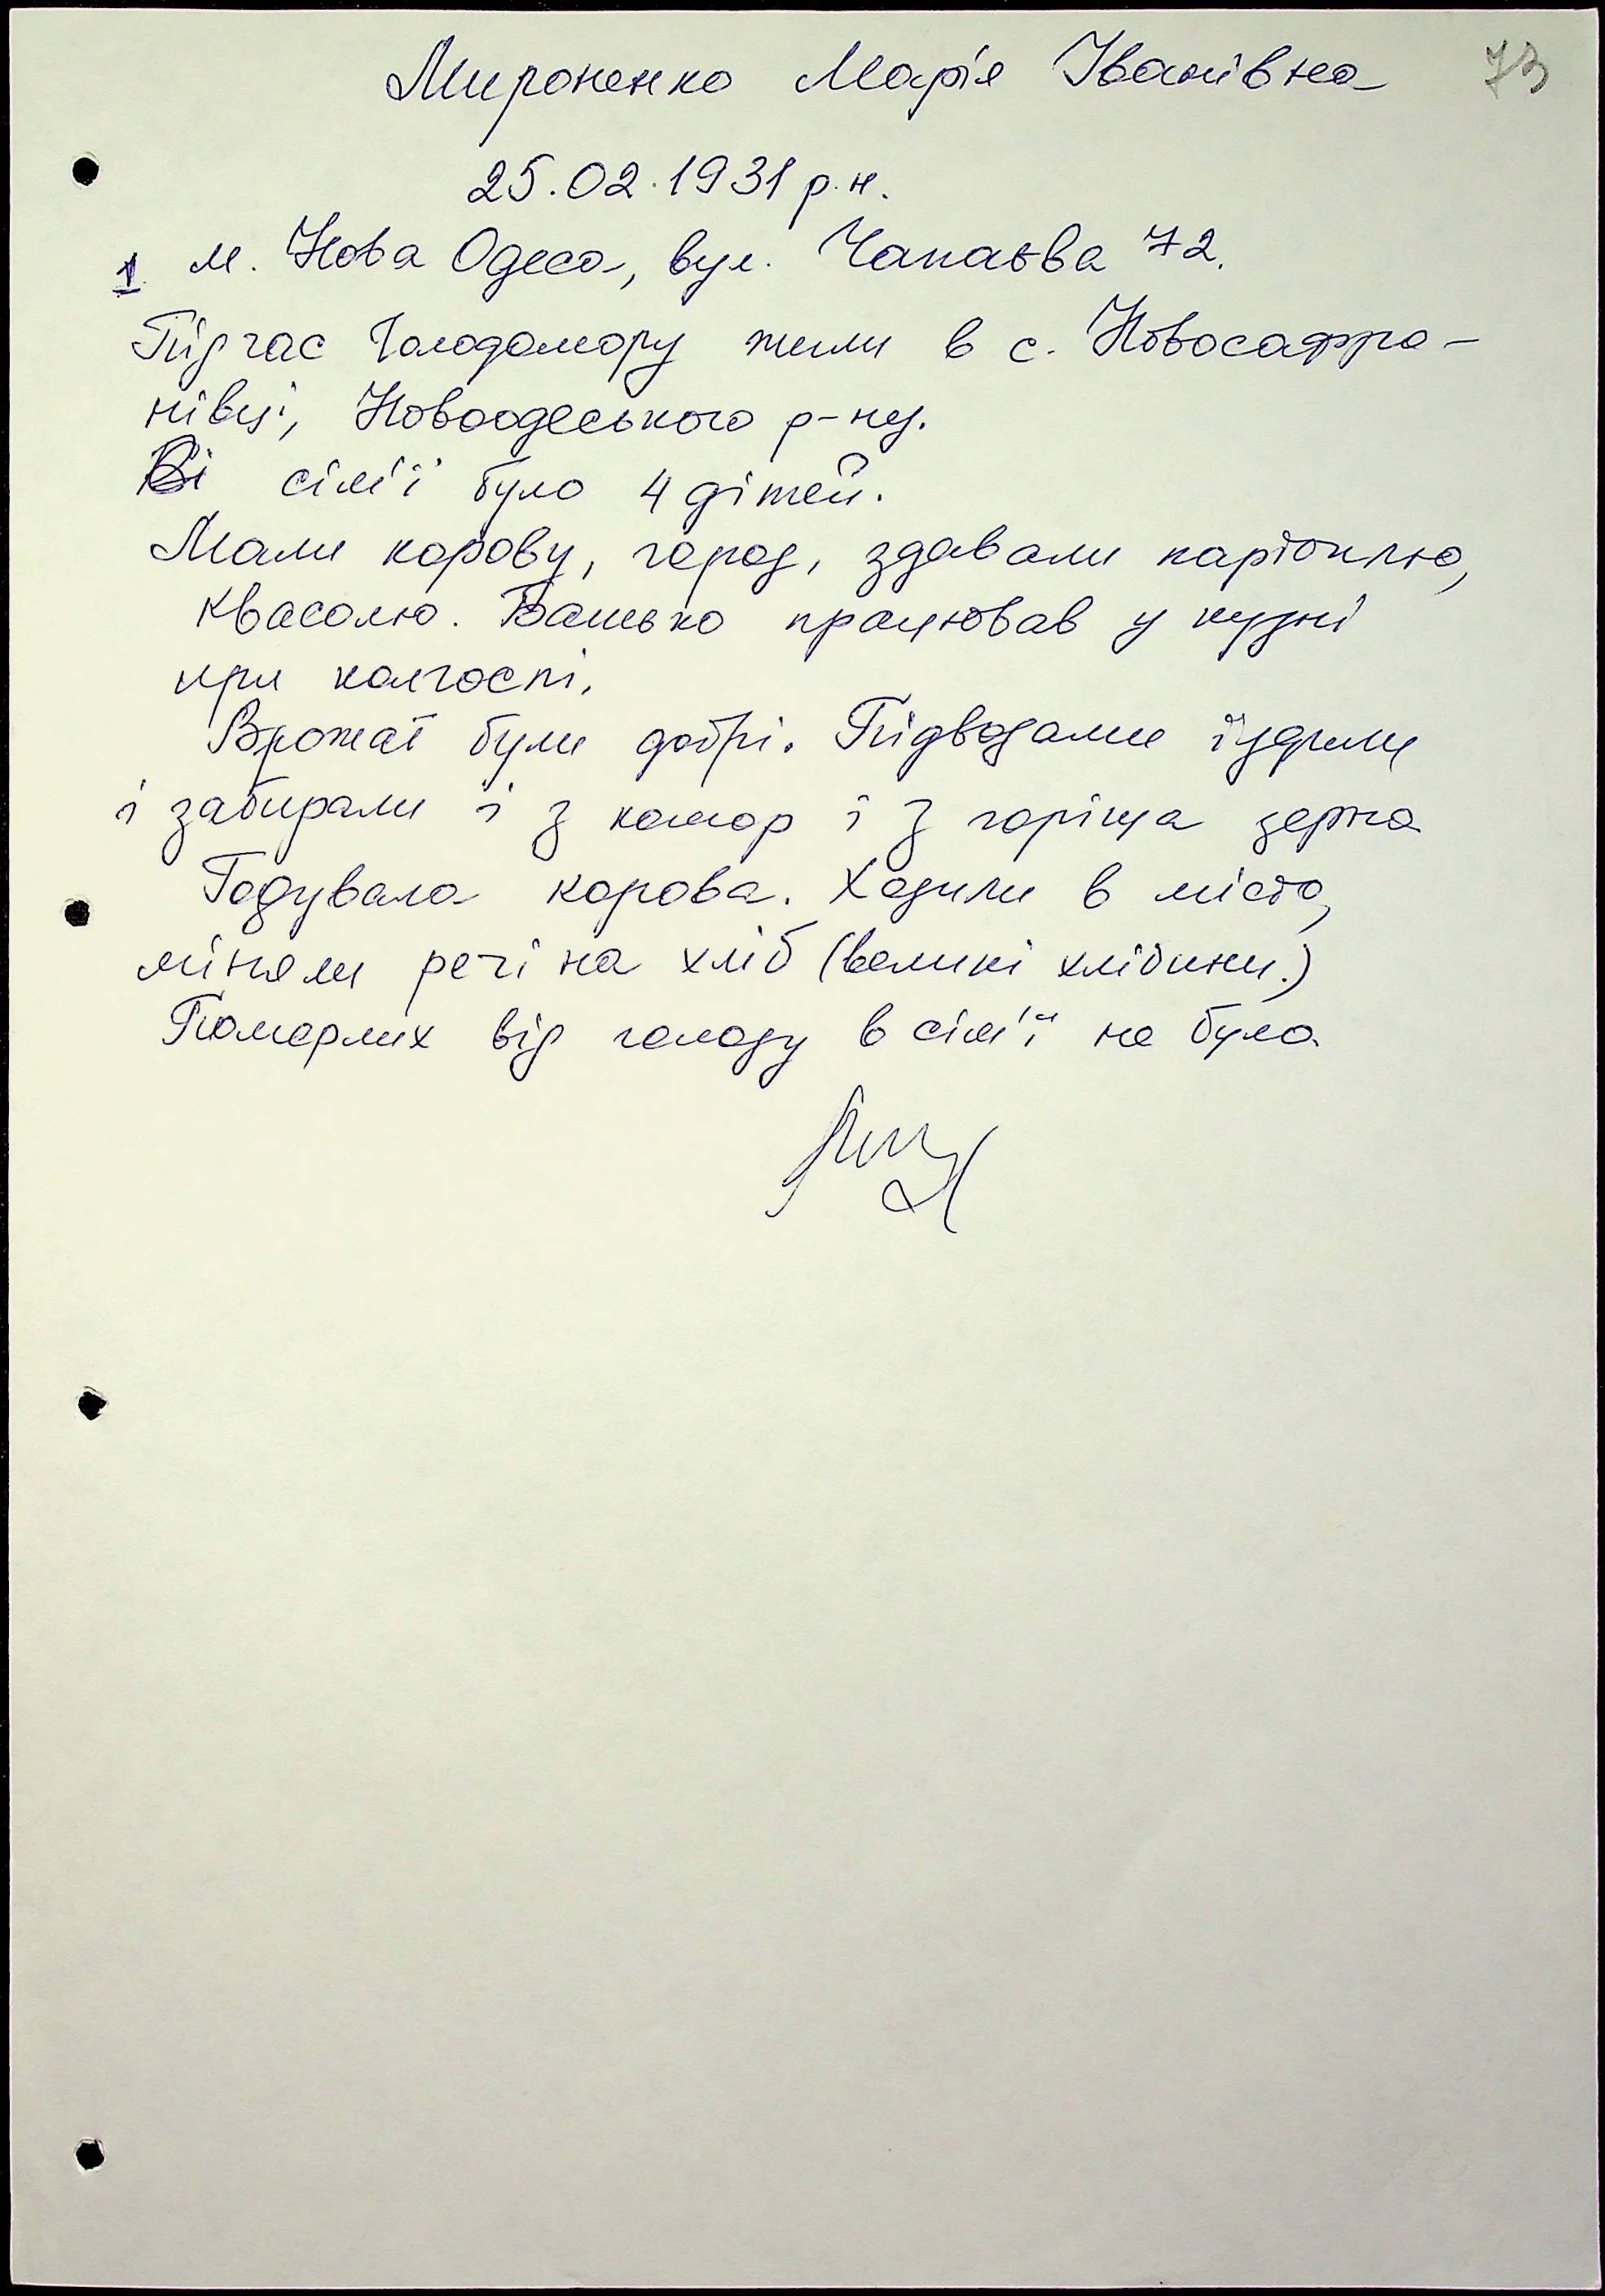 Мироненко Марія Іванівна 73
25.02.1931 р.н.
1. м. Нова Одеса, вул. Чапаєва 72.
Під час Голодомору жили в с. Новосафро-
нівці, Новоодеського р-ну.
Ві сім'ї було 4 дітей.
Мали корову, город, здавали картоплю,
квасолю. Батько працював у кузні
при колгоспі.
Врожаї були добрі. Підводами їздили
і забирали і з комор і з горіща зерно
Годувала корова. Ходили в місто,
міняли речі на хліб (великі хлібини.)
Померлих від голоду в сім'ї не було.